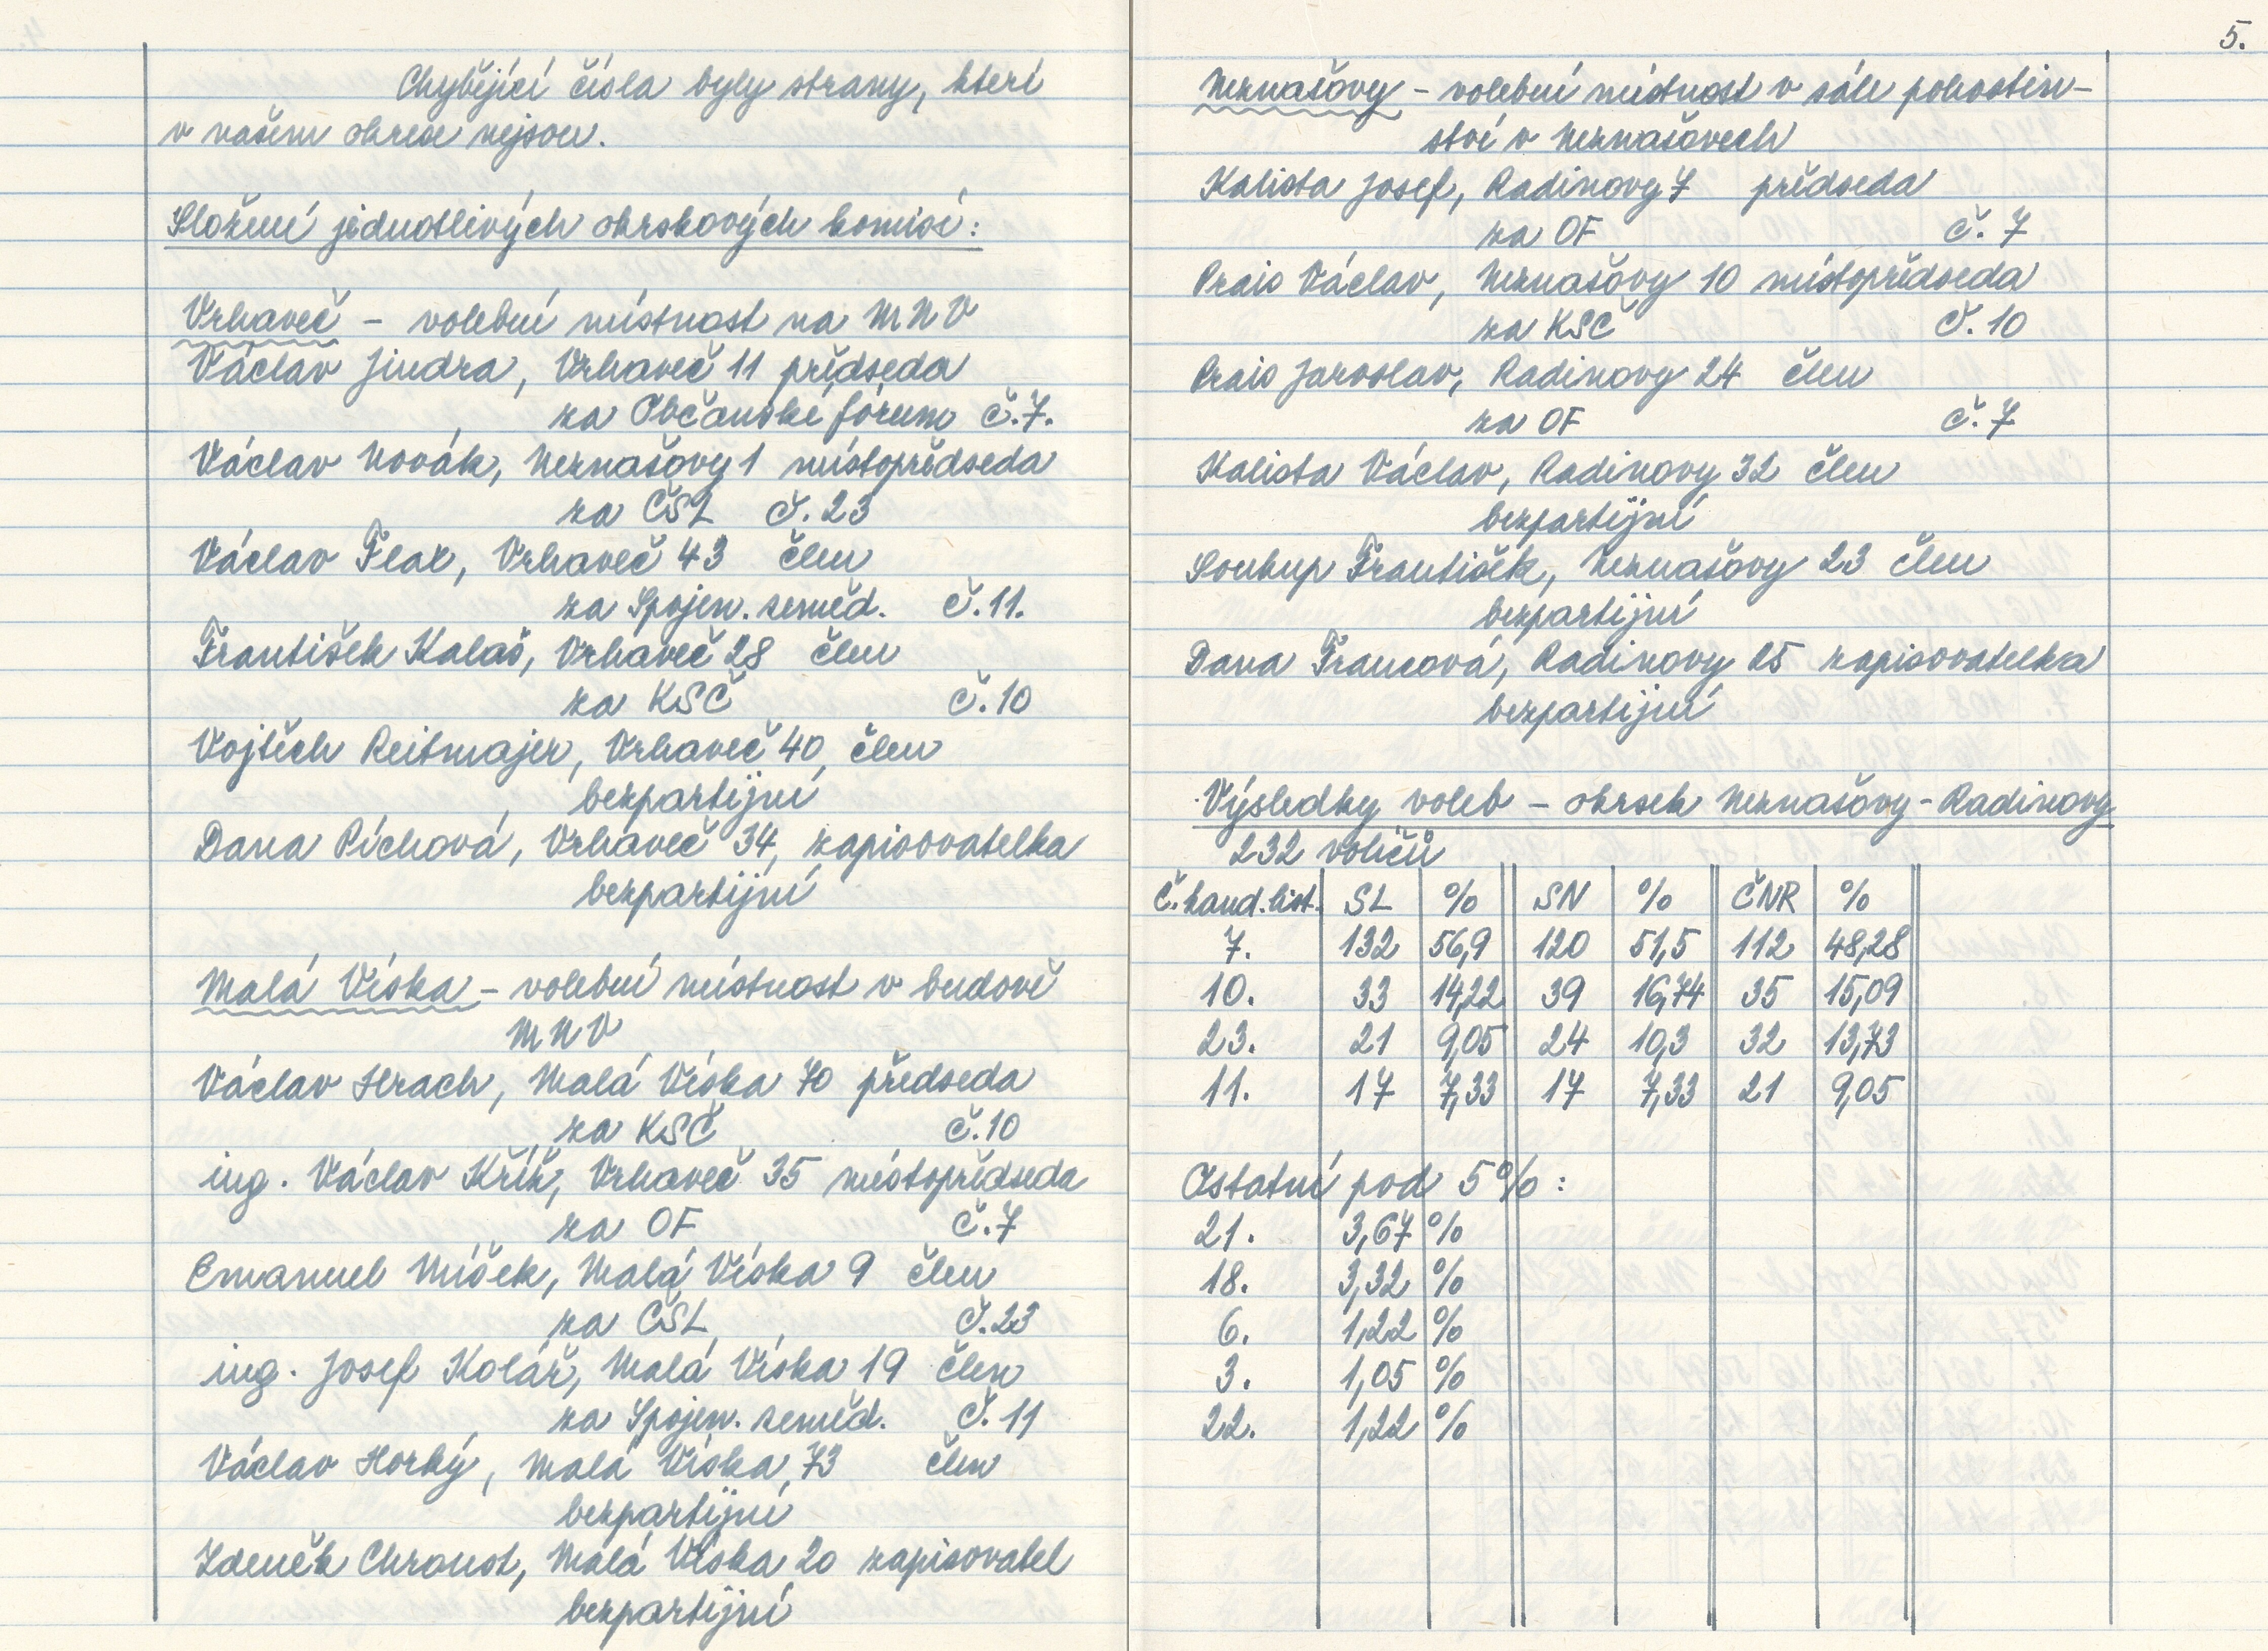 Chybějící čísla byly strany, které
v našem okrese nejsou.
Složení jednotlivých okrskových komisí:
Vrhaveč – volební místnost na MNV
Václav Jindra, Vrhaveč 11 předseda
za Občanské fórum č.7.
Václav Novák, Neznašovy 1 místopředseda
za ČSL č.23
Václav Flax, Vrhaveč 43 člen
za Spojen. zeměd. č.11.
František Kalaš, Vrhaveč 28 člen
za KSČ č.10
Vojtěch Reitmajer, Vrhaveč 40, člen
bezpartijní
Dana Píchová, Vrhaveč 34, zapisovatelka
bezpartijní
Malá Víska – volební místnost v budově
MNV
Václav Hrach, Malá Víska 70 předseda
za KSČ č.10
ing. Václav Kříž, Vrhaveč 35 místopředseda
za OF č.7
Emanuel Míšek, Malá Víska 9 člen
za ČSL č.23
ing. Josef Kolář, Malá Víska 19 člen
za Spojen. zeměd. č.11
Václav Horký, Malá Víska, 73 člen
bezpartijní
Zdeněk Chroust, Malá Víska 20 zapisovatel
bezpartijní
5.
Neznašovy – volební místnost v sále pohostin-
ství v Neznašovech
Kalista Josef, Radinovy 7 předseda
za OF č.7
Prais Václav, Neznašovy 10 místopředseda
za KSČ č.10
Prais Jaroslav, Radinovy 24 člen
za OF č.7
Kalista Václav, Radinovy 32 člen
bezpartijní
Soukup František, Neznašovy 23 člen
bezpartijní
Dana Francová, Radinovy 25 zapisovatelka
bezpartijní
Výsledky voleb – okrsek Neznašovy – Radinovy
232 voličů
Č.kand.list. SL % SN % ČNR %
7. 132 56,9 120 51,5 112 48,28
10. 33 14,22 39 16,74 35 15,09
23. 21 9,05 24 10,3 32 13,73
11. 17 7,33 17 7,33 21 9,05
Ostatní pod 5% :
21. 3,67 %
18. 3,32 %
6. 1,22 %
3. 1,05 %
22. 1,22 %